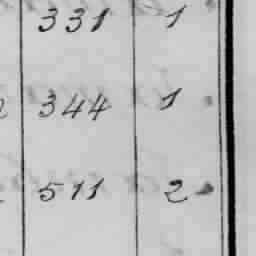 331 1
344 1
511 2